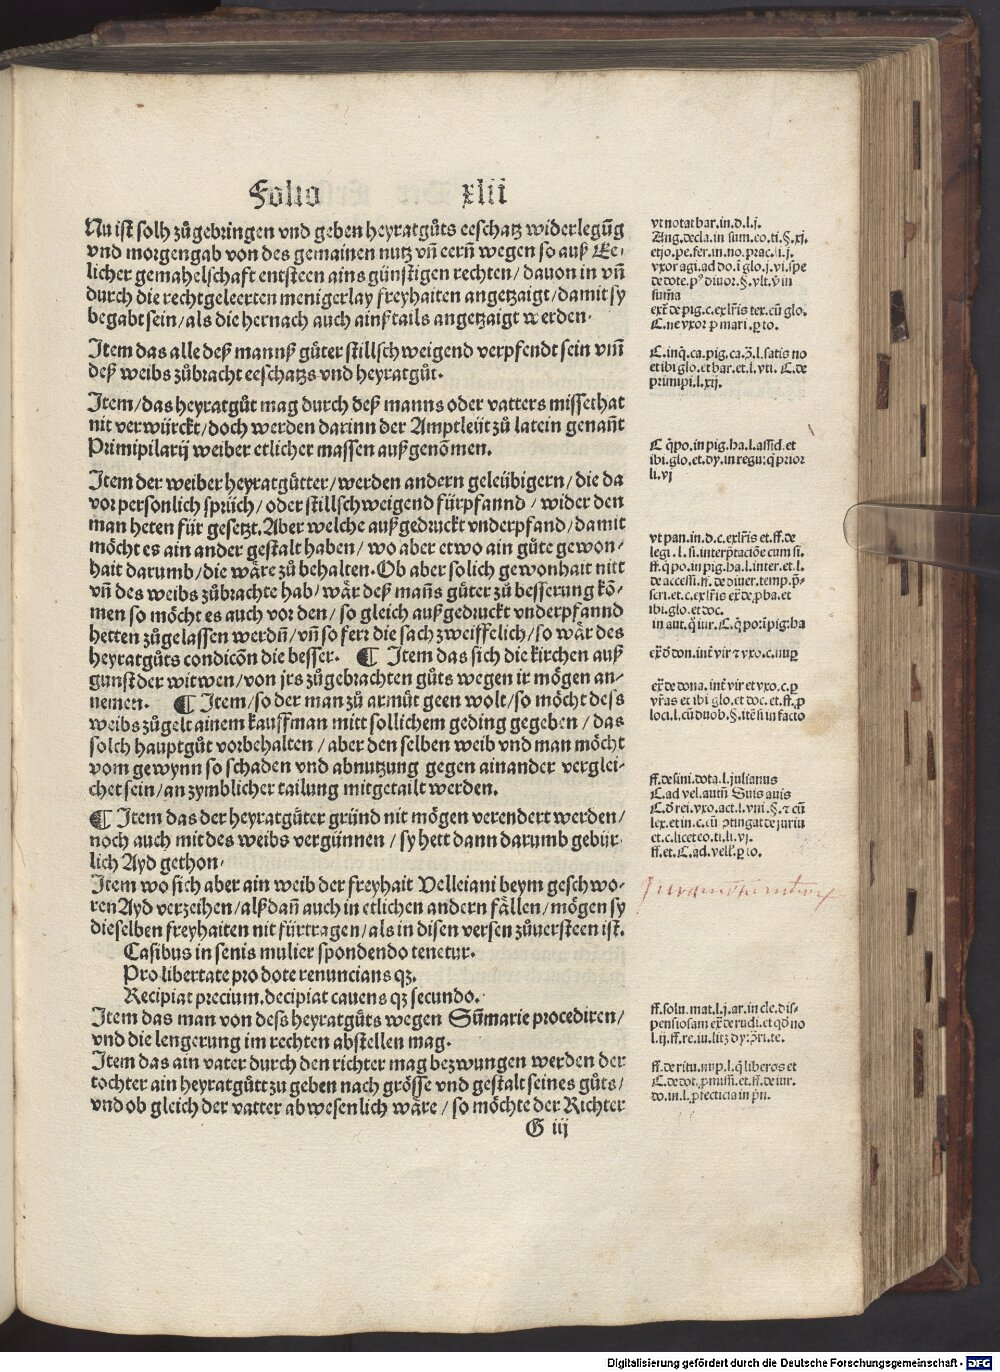 Folio xlii
Nu ist solh zůgebringen vnd geben heyratgůts eeschatz widerlegūg
vnd morgengab von des gemainen nutz vn̄ eern̄ wegen so auß Ee-
licher gemahelschaft entsteen ains günstigen rechten/ dauon in vn̄
durch die rechtgeleerten menigerlay freyhaiten angetzaigt/ damit sy
begabt sein/ als die hernach auch ainßtails angetzaigt werden.
Item das alle deß mannß gůter stillschweigend verpfendt sein vm̄
deß weibs zůbracht eeschatzs vnd heyratgůt.
Item/ das heyratgůt mag durch deß manns oder vatters missethat
nit verwürckt/ doch werden darinn der Amptleüt zů latein genan̄t
Primipilarij weiber etlicher massen außgenōmen.
Item der weiber heyratgůtter/ werden andern geleübigern/ die da
vor personlich sprüch/ oder stillschweigend fürpfannd/ wider den
man heten für gesetzt. Aber welche außgedruckt vnderpfand/ damit
möcht es ain ander gestalt haben/ wo aber etwo ain gůte gewon-
hait darumb/ die wäre zů behalten. Ob aber solich gewonhait nitt
vn̄ des weibs zůbrachte hab/ wär deß man̄s gůter zů besserung kō-
men so möcht es auch vor den/ so gleich außgedruckt vnderpfannd
hetten zůgelassen werdn̄/ vn̄ so ferr die sach zweiffelich/ so wär des
heyratgůts condicōn die besser. ¶ Item das sich die kirchen auß
gunst der witwen/ von jrs zůgebrachten gůts wegen ir mögen an-
nemen. ¶ Item/ so der man zů armůt geen wolt/ so möcht dess
weibs zůgelt ainem kauffman mitt sollichem geding gegeben/ das
solch hauptgůt vorbehalten/ aber den selben weib vnd man möcht
vom gewynn so schaden vnd abnutzung gegen ainander verglei-
chet sein/ an zymblicher tailung mitgetailt werden.
¶ Item das der heyratgůter gründ nit mögen verendert werden/
noch auch mit des weibs vergünnen/ sy hett dann darumb gebür-
lich Ayd gethon.
Item wo sich aber ain weib der freyhait Velleiani beym geschwo-
ren Ayd verzeihen/ alß dan̄ auch in etlichen andern fällen/ mögen sy
dieselben freyhaiten nit fürtragen/ als in disen versen zůuersteen ist.
Casibus in senis mulier spondendo tenetur.
Pro libertate pro dote renuncians qz.
Recipiat precium. decipiat cauens qz secundo.
Item das man von dess heyratgůts wegen Sūmarie procediren/
vnd die lengerung im rechten abstellen mag.
Item das ain vater durch den richter mag bezwungen werden der
tochter ain heyratgůtt zů geben nach grösse vnd gestalt seines gůts/
vnd ob gleich der vatter abwesenlich wäre/ so möchte der Richter
G iij
vt notat bar. in. d. l. j.
Ang. decla. in sum. eo. ti. §. xj.
et jo. pe. fer. in. no. prac. ti. j.
vxor agi. ad do. ī glo. j. vi. spe
de dote. diuor. §. vlt. in
sum̄a
ext̄ de pig. c. exlr̄is tex. cū glo.
C. ne vxor p mari. to.
C. in pig. ca. l. satis no
et ibi glo. et bar. et. l. vti. C. de
primipi. l. xij.
C q̄po. in pig. ha. l. assid. et
ibi. glo. et. dy. in regu: q̄ prior
li. vj
vt pan. in. d. c. exlr̄is et. ff. de
legi. l. si. interp̄tacióe cum si.
ff. q̄ po. in pig. ha. l. inter. et. l.
de accessi. ff. de diuer. temp. p̄-
scri. et. c. exlr̄is ext̄ de ꝓba. et
ibi. glo. et doc.
in aut. q̄ iur. C. q̄ po: ī pig: ha
ext̄ đ don. int̄ vir ⁊ vxo. c. nup̱
ext̄ de dona. int̄ vir et vxo. c. ꝑ
vr̄as et ibi glo. et doc. et. ff. ꝓ
loci. l. cū duob. §. itē si in facto
ff. de fūn. dota. l. julianus
C. ad vel. autn̄ Siuis auis
C. đ rei. vxo. act. l. vni. §. ⁊ cū
lex. et in. c. cū ꝯtingat de iureiu
et. c. licet eo. ti. li. vj.
ff. et. C. ad. vell'. ꝑ to.
ff. solu. mat. l. j. ar. in cle. dis-
pensiosam ext̄ de iudi. et qd̄ no
l. ij. ff. re. iu. litz dy: te.
ff. de ritu. nup. l. q̄ liberos et
C. de dot. ꝓmissi. et. ff. de iur.
do. in. l. ꝓfecticia in prī.
Digitalisierung gefördert durch die Deutsche Forschungsgemeinschaft - DFG